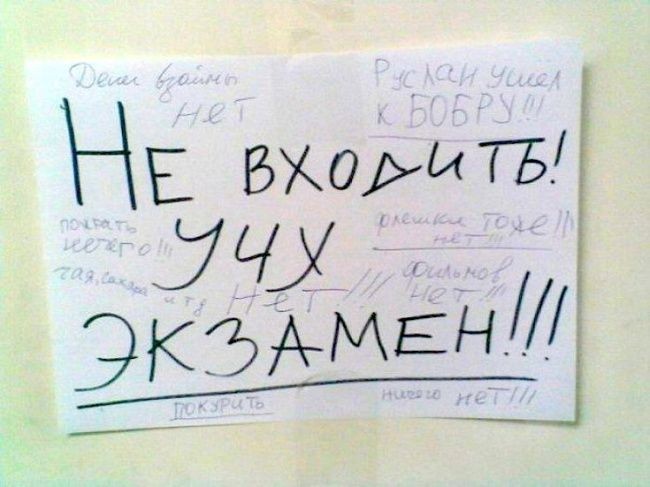 взаймы
НЕТ
РуслАН Ушел
к БОБРУ!!!
НЕ ВХОДИТЬ!
пожрать
нечего!!!
флешки тоже!!!
нет!!!
УЧУ
чая, сахара и т д НЕТ!!!
фильмов
нет!!!
ЭКЗАМЕН!!!!
ПОКУРИТЬ ничего нет!!!